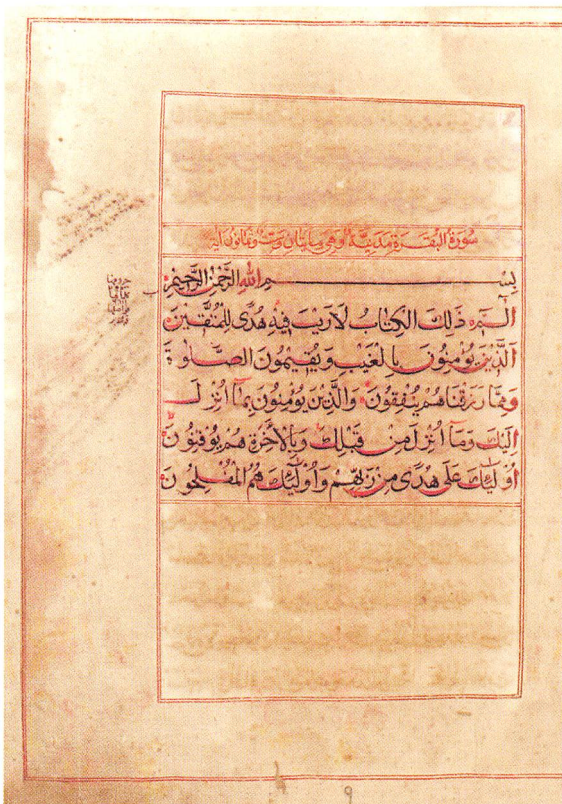 سورة البقرة مدنية وهي مايتان وست وثمانون آية
بسم الله الرحمن الرحيم
الم ذَلِكَ الكِتَابُ لَارَيْبَ فِيْهِ هُدًى لِلْمُتَّقِيْنَ
الَّذِيْنَ يُؤْمِنُونَ بِالْغَيْبِ وَيُقِيْمُونَ الصَّلٰوةَ
وَمِمَّا رَزَقْنَاهُمْ يُنْفِقُونَ وَالَّذِيْنَ يُؤْمِنُونَ بِمَآ اُنْزِلَ
اِلَيْكَ وَمَآ اُنْزِلَ مِنْ قَبْلِكَ وَبِالْاٰخِرَةِ هُمْ يُوْقِنُوْنَ
اُوْلٰٓئِكَ عَلٰى هُدًى مِنْ رَبِّهِمْ وَاُوْلٰٓئِكَ هُمُ الْمُفْلِحُوْنَ
9